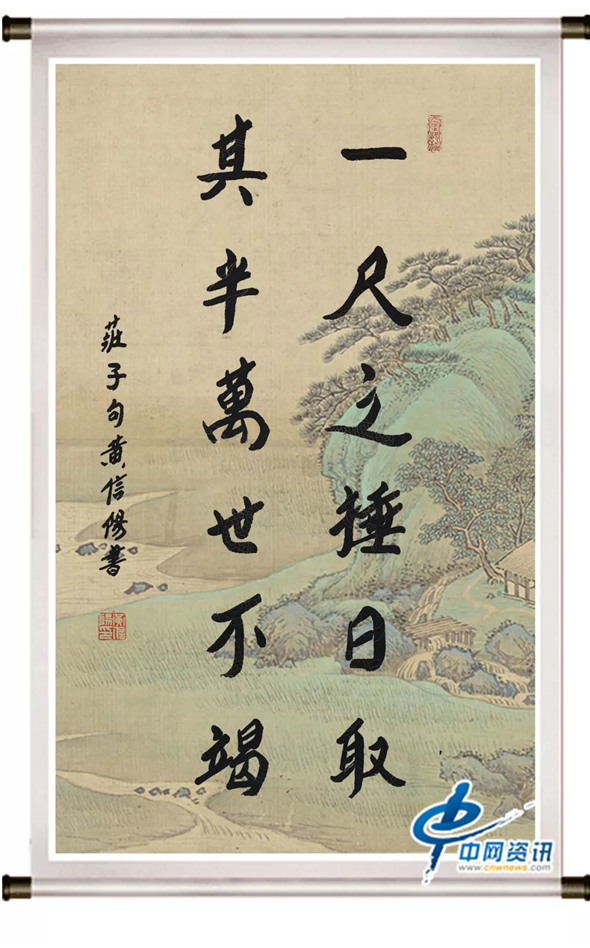 一尺之捶日取
其半萬世不竭
莊子句黄信陽書
中网资讯
www.cnwnews.com